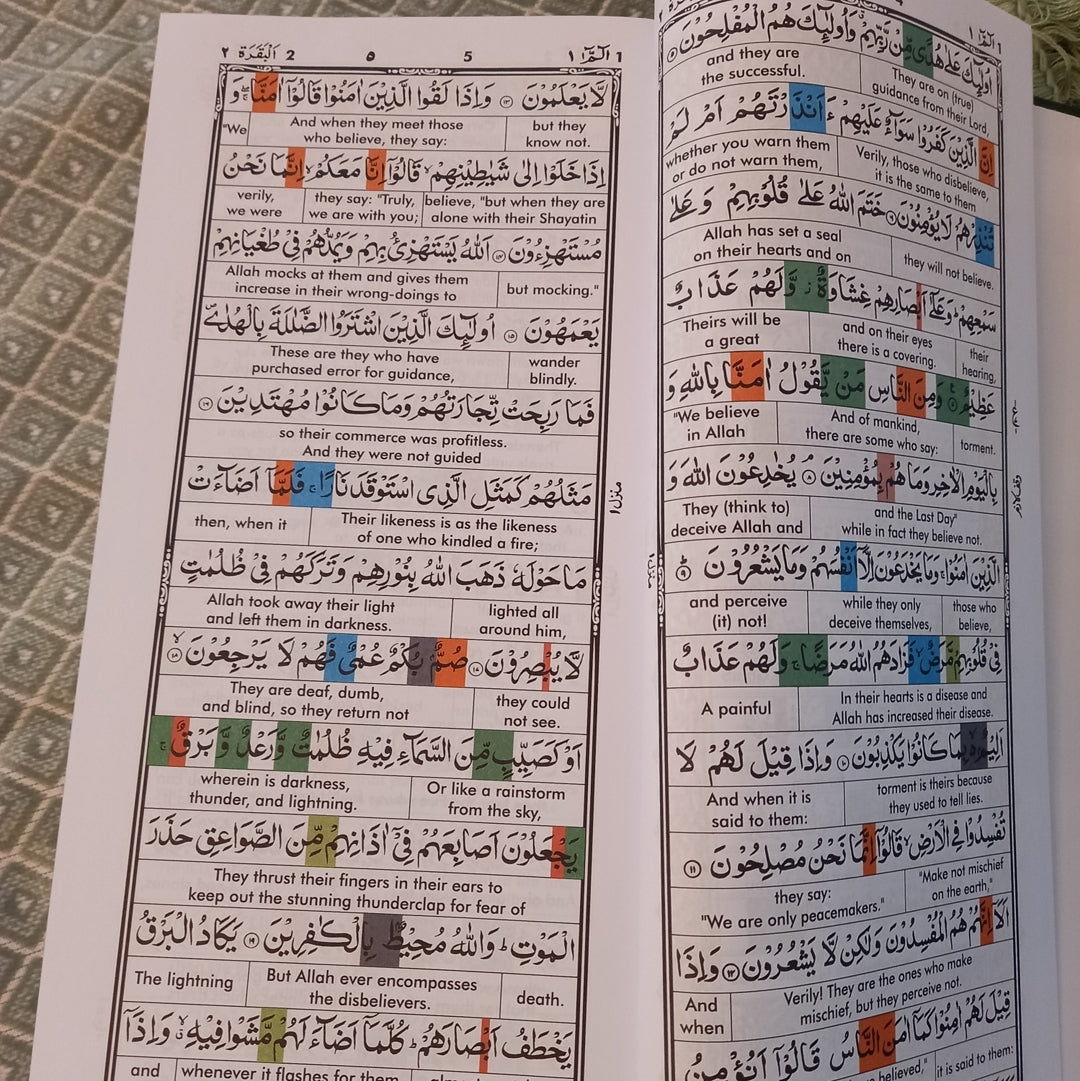 ٤ الٓمّٓ ١
اُولٰٓئِكَ عَلٰى هُدًى مِّنْ رَّبِّهِمْ وَاُولٰٓئِكَ هُمُ الْمُفْلِحُوْنَ ٥
They are on (true)
guidance from their Lord,
and they are
the successful.
اِنَّ الَّذِيْنَ كَفَرُوْا سَوَآءٌ عَلَيْهِمْ ءَاَنْذَرْتَهُمْ اَمْ لَمْ
Verily, those who disbelieve,
it is the same to them
whether you warn them
or do not warn them,
تُنْذِرْهُمْ لَا يُؤْمِنُوْنَ ٦ خَتَمَ اللّٰهُ عَلٰى قُلُوْبِهِمْ وَعَلٰى
they will not believe.
Allah has set a seal
on their hearts and on
سَمْعِهِمْ ؕ وَعَلٰٓى اَبْصَارِهِمْ غِشَاوَةٌ ز وَّلَهُمْ عَذَابٌ
their
hearing,
and on their eyes
there is a covering.
Theirs will be
a great
عَظِيْمٌ ٧ وَمِنَ النَّاسِ مَنْ يَّقُوْلُ اٰمَنَّا بِاللّٰهِ وَ
torment.
And of mankind,
there are some who say:
"We believe
in Allah
بِالْيَوْمِ الْاٰخِرِ وَمَا هُمْ بِمُؤْمِنِيْنَ ٨ يُخٰدِعُوْنَ اللّٰهَ وَ
and the Last Day"
while in fact they believe not.
They (think to)
deceive Allah and
الَّذِيْنَ اٰمَنُوْا ۚ وَمَا يَخْدَعُوْنَ اِلَّآ اَنْفُسَهُمْ وَمَا يَشْعُرُوْنَ ٩
those who
believe,
while they only
deceive themselves,
and perceive
(it) not!
فِيْ قُلُوْبِهِمْ مَّرَضٌ ۙ فَزَادَهُمُ اللّٰهُ مَرَضًا ۚ وَلَهُمْ عَذَابٌ
In their hearts is a disease and
Allah has increased their disease.
A painful
اَلِيْمٌۢ ۙ بِمَا كَانُوْا يَكْذِبُوْنَ ١٠ وَاِذَا قِيْلَ لَهُمْ لَا
torment is theirs because
they used to tell lies.
And when it is
said to them:
تُفْسِدُوْا فِى الْاَرْضِ ۙ قَالُوْٓا اِنَّمَا نَحْنُ مُصْلِحُوْنَ ١١
"Make not mischief
on the earth,"
they say:
"We are only peacemakers."
اَلَآ اِنَّهُمْ هُمُ الْمُفْسِدُوْنَ وَلٰكِنْ لَّا يَشْعُرُوْنَ ١٢ وَاِذَا
Verily! They are the ones who make
mischief, but they perceive not.
And
when
قِيْلَ لَهُمْ اٰمِنُوْا كَمَآ اٰمَنَ النَّاسُ قَالُوْٓا اَنُؤْمِنُ
it is said to them:
believed,"
1 الٓمّٓ ١ 5 ٥ 2 اَلْبَقَرَة ٢
لَّا يَعْلَمُوْنَ ١٣ وَاِذَا لَقُوا الَّذِيْنَ اٰمَنُوْا قَالُوْٓا اٰمَنَّا ۚ وَ
but they
know not.
And when they meet those
who believe, they say:
"We
اِذَا خَلَوْا اِلٰى شَيٰطِيْنِهِمْ ۙ قَالُوْٓا اِنَّا مَعَكُمْ ۙ اِنَّمَا نَحْنُ
believe, "but when they are
alone with their Shayatin
they say: "Truly,
we are with you;
verily,
we were
مُسْتَهْزِءُوْنَ ١٤ اَللّٰهُ يَسْتَهْزِئُ بِهِمْ وَيَمُدُّهُمْ فِيْ طُغْيَانِهِمْ
but mocking."
Allah mocks at them and gives them
increase in their wrong-doings to
يَعْمَهُوْنَ ١٥ اُولٰٓئِكَ الَّذِيْنَ اشْتَرَوُا الضَّلٰلَةَ بِالْهُدٰى
wander
blindly.
These are they who have
purchased error for guidance,
فَمَا رَبِحَتْ تِّجَارَتُهُمْ وَمَا كَانُوْا مُهْتَدِيْنَ ١٦
so their commerce was profitless.
And they were not guided
مَثَلُهُمْ كَمَثَلِ الَّذِى اسْتَوْقَدَ نَارًا ۚ فَلَمَّآ اَضَآءَتْ
Their likeness is as the likeness
of one who kindled a fire;
then, when it
مَا حَوْلَهٗ ذَهَبَ اللّٰهُ بِنُوْرِهِمْ وَتَرَكَهُمْ فِيْ ظُلُمٰتٍ
lighted all
around him,
Allah took away their light
and left them in darkness.
لَّا يُبْصِرُوْنَ ١٧ صُمٌّۢ بُكْمٌ عُمْيٌ فَهُمْ لَا يَرْجِعُوْنَ ۙ ١٨
they could
not see.
They are deaf, dumb,
and blind, so they return not
اَوْ كَصَيِّبٍ مِّنَ السَّمَآءِ فِيْهِ ظُلُمٰتٌ وَّرَعْدٌ وَّبَرْقٌ ۚ
Or like a rainstorm
from the sky,
wherein is darkness,
thunder, and lightning.
يَجْعَلُوْنَ اَصَابِعَهُمْ فِيْٓ اٰذَانِهِمْ مِّنَ الصَّوَاعِقِ حَذَرَ
They thrust their fingers in their ears to
keep out the stunning thunderclap for fear of
الْمَوْتِ ؕ وَاللّٰهُ مُحِيْطٌۢ بِالْكٰفِرِيْنَ ١٩ يَكَادُ الْبَرْقُ
death.
But Allah ever encompasses
the disbelievers.
The lightning
يَخْطَفُ اَبْصَارَهُمْ ؕ كُلَّمَآ اَضَآءَ لَهُمْ مَّشَوْا فِيْهِ ۙ وَاِذَآ
whenever it flashes for them
and
منزل ١